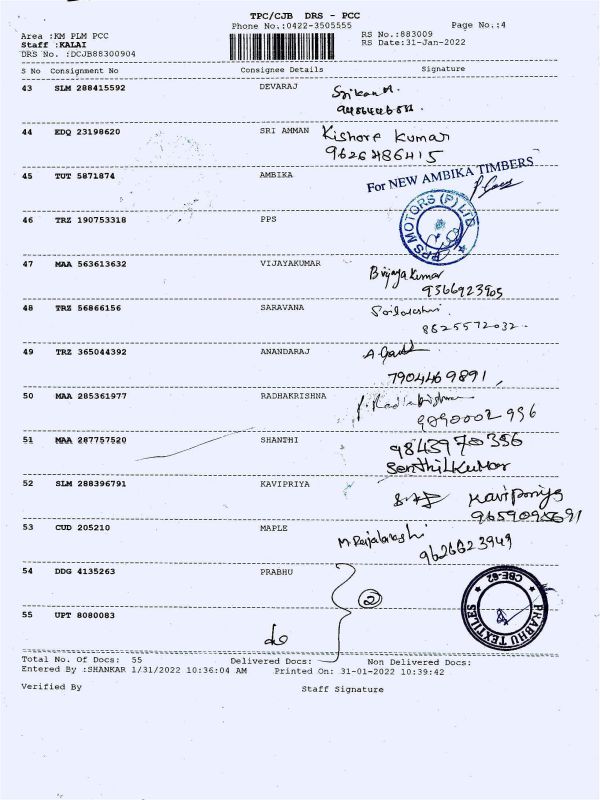 TPC/CJB DRS - PCC
Phone No.:0422-3505555
Page No.:4
Area :KM PLM PCC
Staff :KALAI
DRS No. :DCJB88300904
RS No.:883009
RS Date:31-Jan-2022
S No Consignment No Consignee Details Signature
43 SLM 288415592 DEVARAJ
44 EDQ 23198620 SRI AMMAN Kishore Kumar
9626486415
45 TUT 5871874 AMBIKA For NEW AMBIKA TIMBERS
46 TRZ 190753318 PPS PPS MOTORS (P) LTD
47 MAA 563613632 VIJAYAKUMAR B vijaya Kumar
9366923905
48 TRZ 56866156 SARAVANA
8625572032.
49 TRZ 365044392 ANANDARAJ
7904469891,
50 MAA 285361977 RADHAKRISHNA
9090002996
51 MAA 287757520 SHANTHI 9843970356
SenthilKumar
52 SLM 288396791 KAVIPRIYA Kavipriya
53 CUD 205210 MAPLE
9626623949
54 DDG 4135263 PRABHU 2 PRABHU TEXTILES CBE-62
55 UPT 8080083 do
Total No. Of Docs: 55 Delivered Docs: Non Delivered Docs:
Entered By :SHANKAR 1/31/2022 10:36:04 AM Printed On: 31-01-2022 10:39:42
Verified By Staff Signature